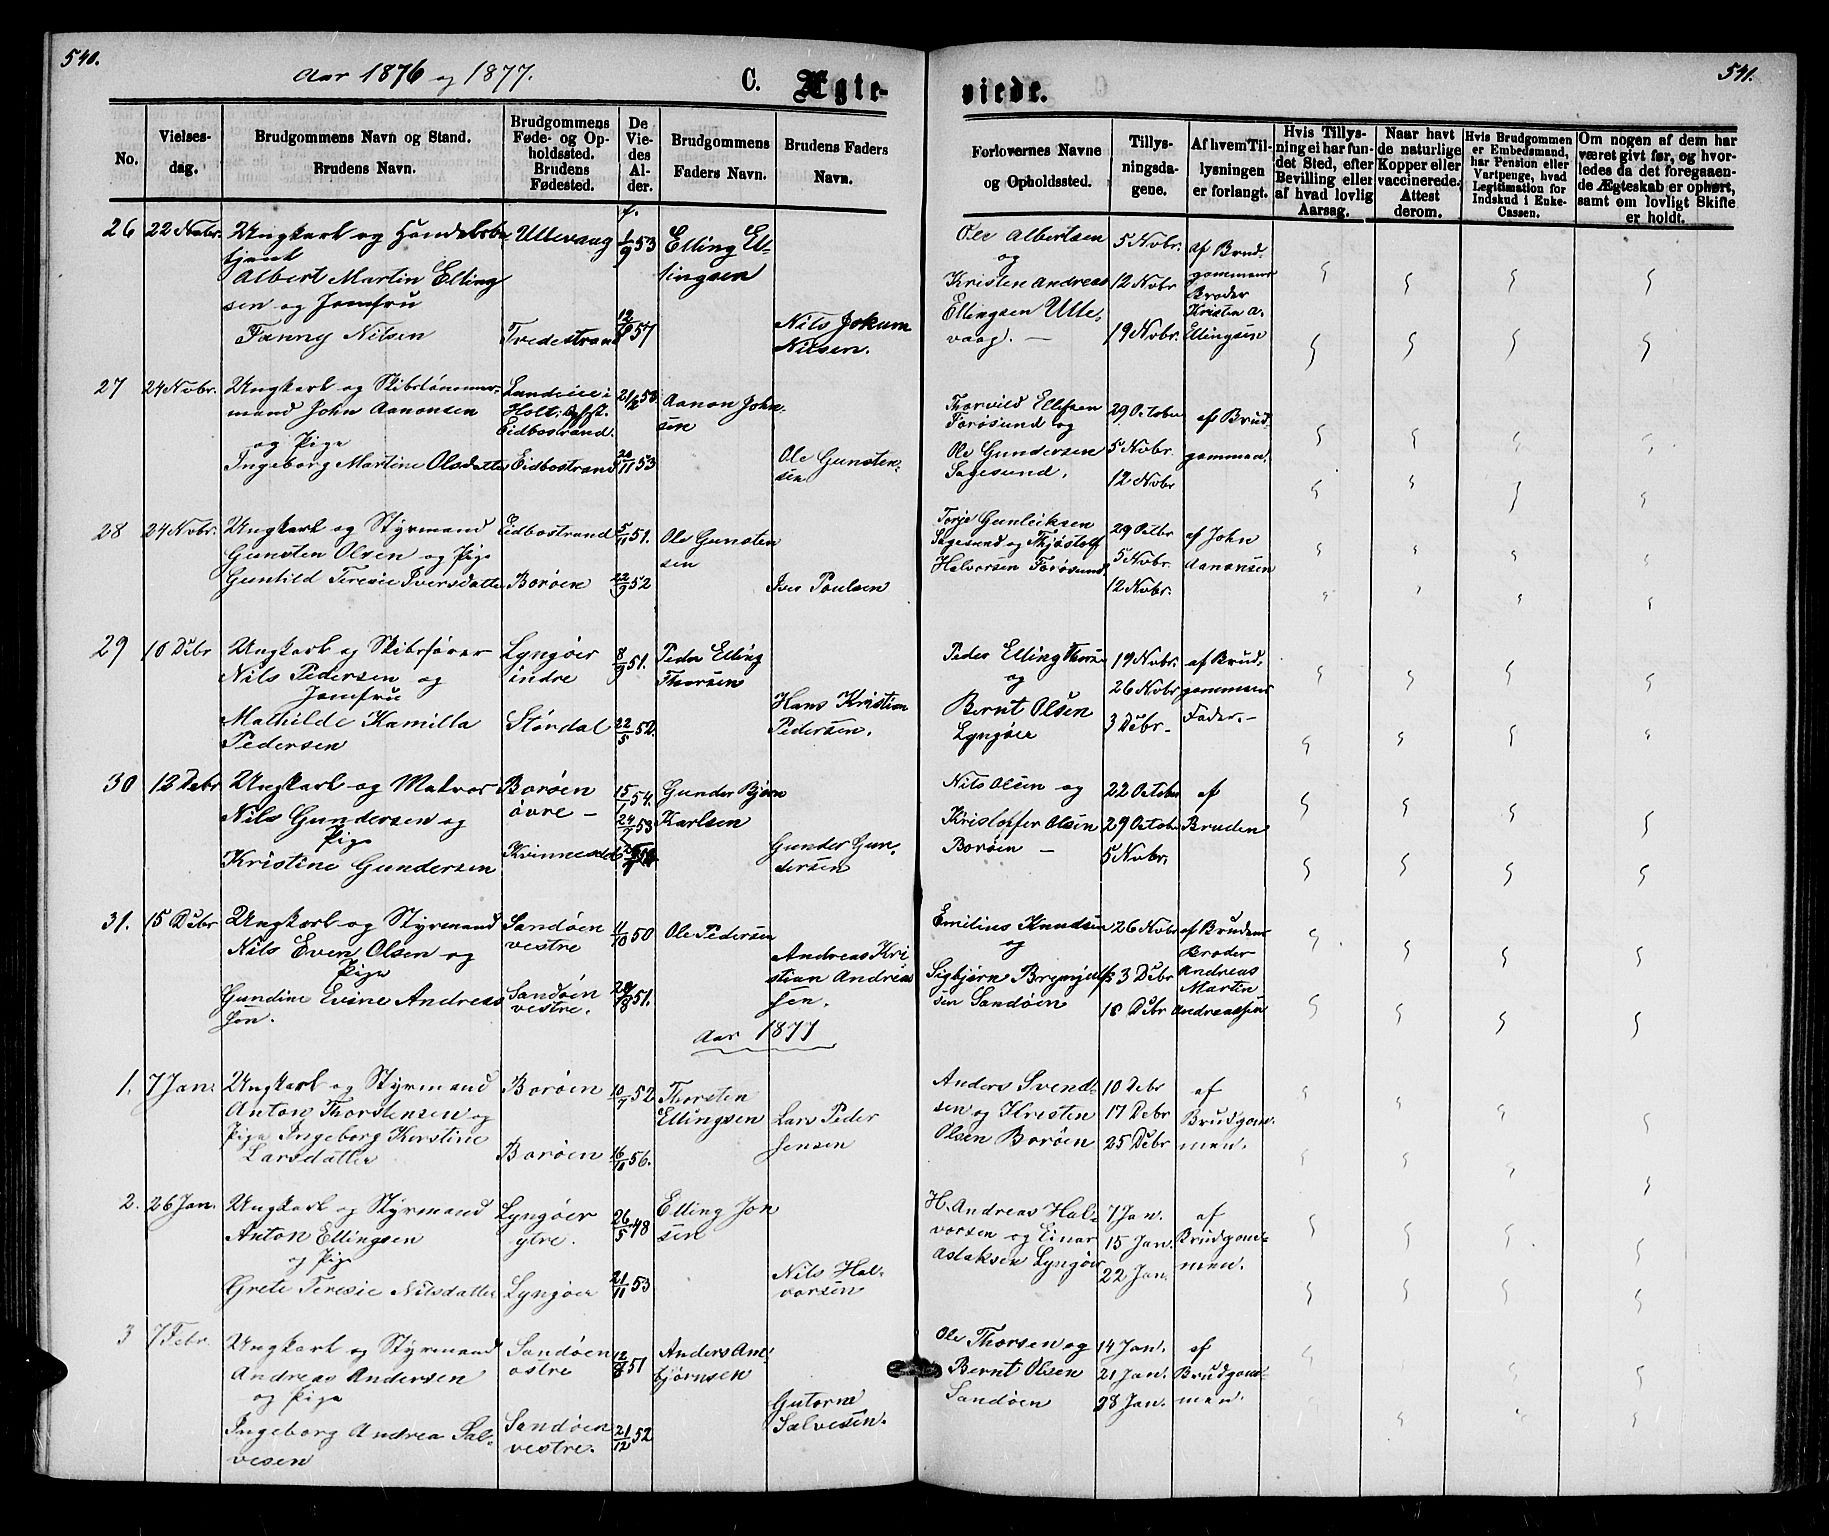 540.
Aar 1876 og 1877.
C. Ægte-
viede.
541.
No.
Vielses-
dag.
Brudgommens Navn og Stand.
Brudens Navn.
Brudgommens
Føde- og Op-
holdssted.
Brudens
Fødested.
De
Vie-
des
Al-
der.
Brudgommens
Faders Navn.
Brudens Faders
Navn.
Forlovernes Navne
og Opholdssted.
Tillys-
ningsda-
gene.
Af hvem Til-
lysningen
er forlangt.
Hvis Tillys-
ning ei har fun-
det Sted, efter
Bevilling eller
af hvad lovlig
Aarsag.
Naar havt
de naturlige
Kopper eller
vaccinerede.
Attest
derom.
Hvis Brudgommen
er Embedsmand,
har Pension eller
Vartpenge, hvad
Legitimation for
Indskud i Enke-
Cassen.
Om nogen af dem har
været givt før, og hvor-
ledes da det foregaaen-
de Ægteskab er ophørt,
samt om lovligt Skifte
er holdt.
26
22 Novbr.
Ungkarl og Handelsbe
tjent
Albert Martin Elling
sen og Jomfru
Fanny Nilsen
Ullevaag
Tvedestrand
f.
1/9 53
57
Elling El-
lingsen
Nils Jokum
Nilsen.
Ole Albertsen
og
Kristen Andreas
Ellingsen Ulle-
vaag. —
5 Novbr.
12 Novbr
19 Novbr.
af Brud-
gommens
Broder
Kristen A.
Ellingsen
27
24 Novbr.
Ungkarl og Skibstømmer-
mand John Aanonsen
og Pige
Ingeborg Martine Olsdatter
Holt,
Eidbostrand.
Eidbostrand
20/11 53
Aanon John-
sen
Ole Gunsten-
sen
Thorvild Ellefsen
Forøsund og
Ole Gundersen
Sagesund.
29 October
5 Novbr.
12 Novbr
af Brud-
gommen.
28
24 Novbr.
Ungkarl og Styrmand
Gunsten Olsen og Pige
Gunhild Teresie Iversdatter
Eidbostrand
Borøen
5/11 51.
22/9 52
Ole Gunsten
sen
Iver Poulsen
Torje Gunleiksen
Sagesund og Thjøstolf
Halvorsen Forøsund.
29 Octbr
5 Novbr.
12 Novbr.
af John
Aanonsen
29
10 Debr
Ungkarl og Skibsfører
Nils Pedersen og
Jomfru
Mathilde Kamilla
Pedersen
Lyngøer
indre
Stordal
8/9 51.
22/5 52.
Peder Elling
Thorsen
Hans Kristian
Pedersen.
Peder Elling Thorsen
og
Bernt Olsen
Lyngøer
19 Novbr.
26 Novbr
3 Debr.
af Brud-
gommens
Fader.
30
13 Debr
Ungkarl og Matros
Nils Gundersen og
Pige
Kristine Gundersen
Borøen
øvre —
15/1 54.
53
Gunder Bjørn
Karlsen
Gunder Gun-
dersen
Nils Olsen og
Kristoffer Olsen
Borøen —
22 October
29 October
5 Novbr.
af
Bruden
31.
15 Debr
Ungkarl og Styrmand
Nils Even Olsen og
Pige
Gundine Evine Andreas
sen.
Sandøen
vestre
Sandøen
vestre.
11/10 50
51.
Ole Pedersen
Andreas Kri
stian Andreas
sen.
Emilius Knudsen
og
Sigbjørn Brynjulf-
sen Sandøen
26 Novbr
3 Debr
10 Debr
af Brudens
Broder
Andreas
Martin
Andreassen
Aar 1877
1.
7 Jan.
Ungkarl og Styrmand
Anton Thorstensen og
Pige Ingeborg Kirstine
Larsdatter
Borøen
Borøen
10/7 52
56.
Thorsten
Ellingsen
Lars Peder
Jensen
Anders Svend-
sen og Kristen
Olsen Borøen
10 Debr
17 Debr
25 Debr
af
Brudgom-
men.
2.
26 Jan.
Ungkarl og Styrmand
Anton Ellingsen
og Pige
Grete Teresie Nilsdatter
Lyngøer
ytre.
Lyngøer
26/5 48
21/11 53
Elling Jon
sen
Nils Hal-
vorsen
H. Andreas Hal-
vorsen og Einar
Aslaksen Lyngøer
7 Jan.
15 Jan.
22 Jan.
af
Brudgom-
men.
3
7 Febr.
Ungkarl og Styrmand
Andreas Andersen
og Pige
Ingeborg Andrea Sal-
vesen
Sandøen
østre
Sandøen
vestre.
12/8 51
21/12 52
Anders Am-
bjørnsen
Gutorm
Salvesen.
Ole Thorsen og
Bernt Olsen
Sandøen
14 Jan.
21 Jan.
28 Jan.
af
Brudgom-
men.